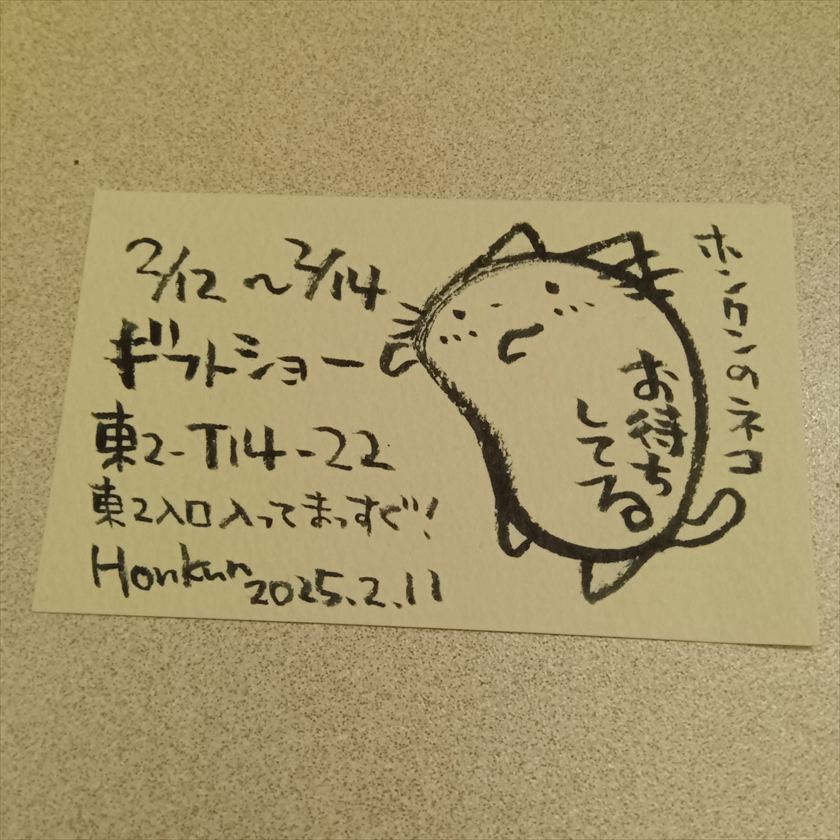 2/12~2/14
ギフトショー
東2-T14-22
東2入口入ってまっすぐ!
Honkun 2025.2.11
ホンクンのネコ
お待ち
してる